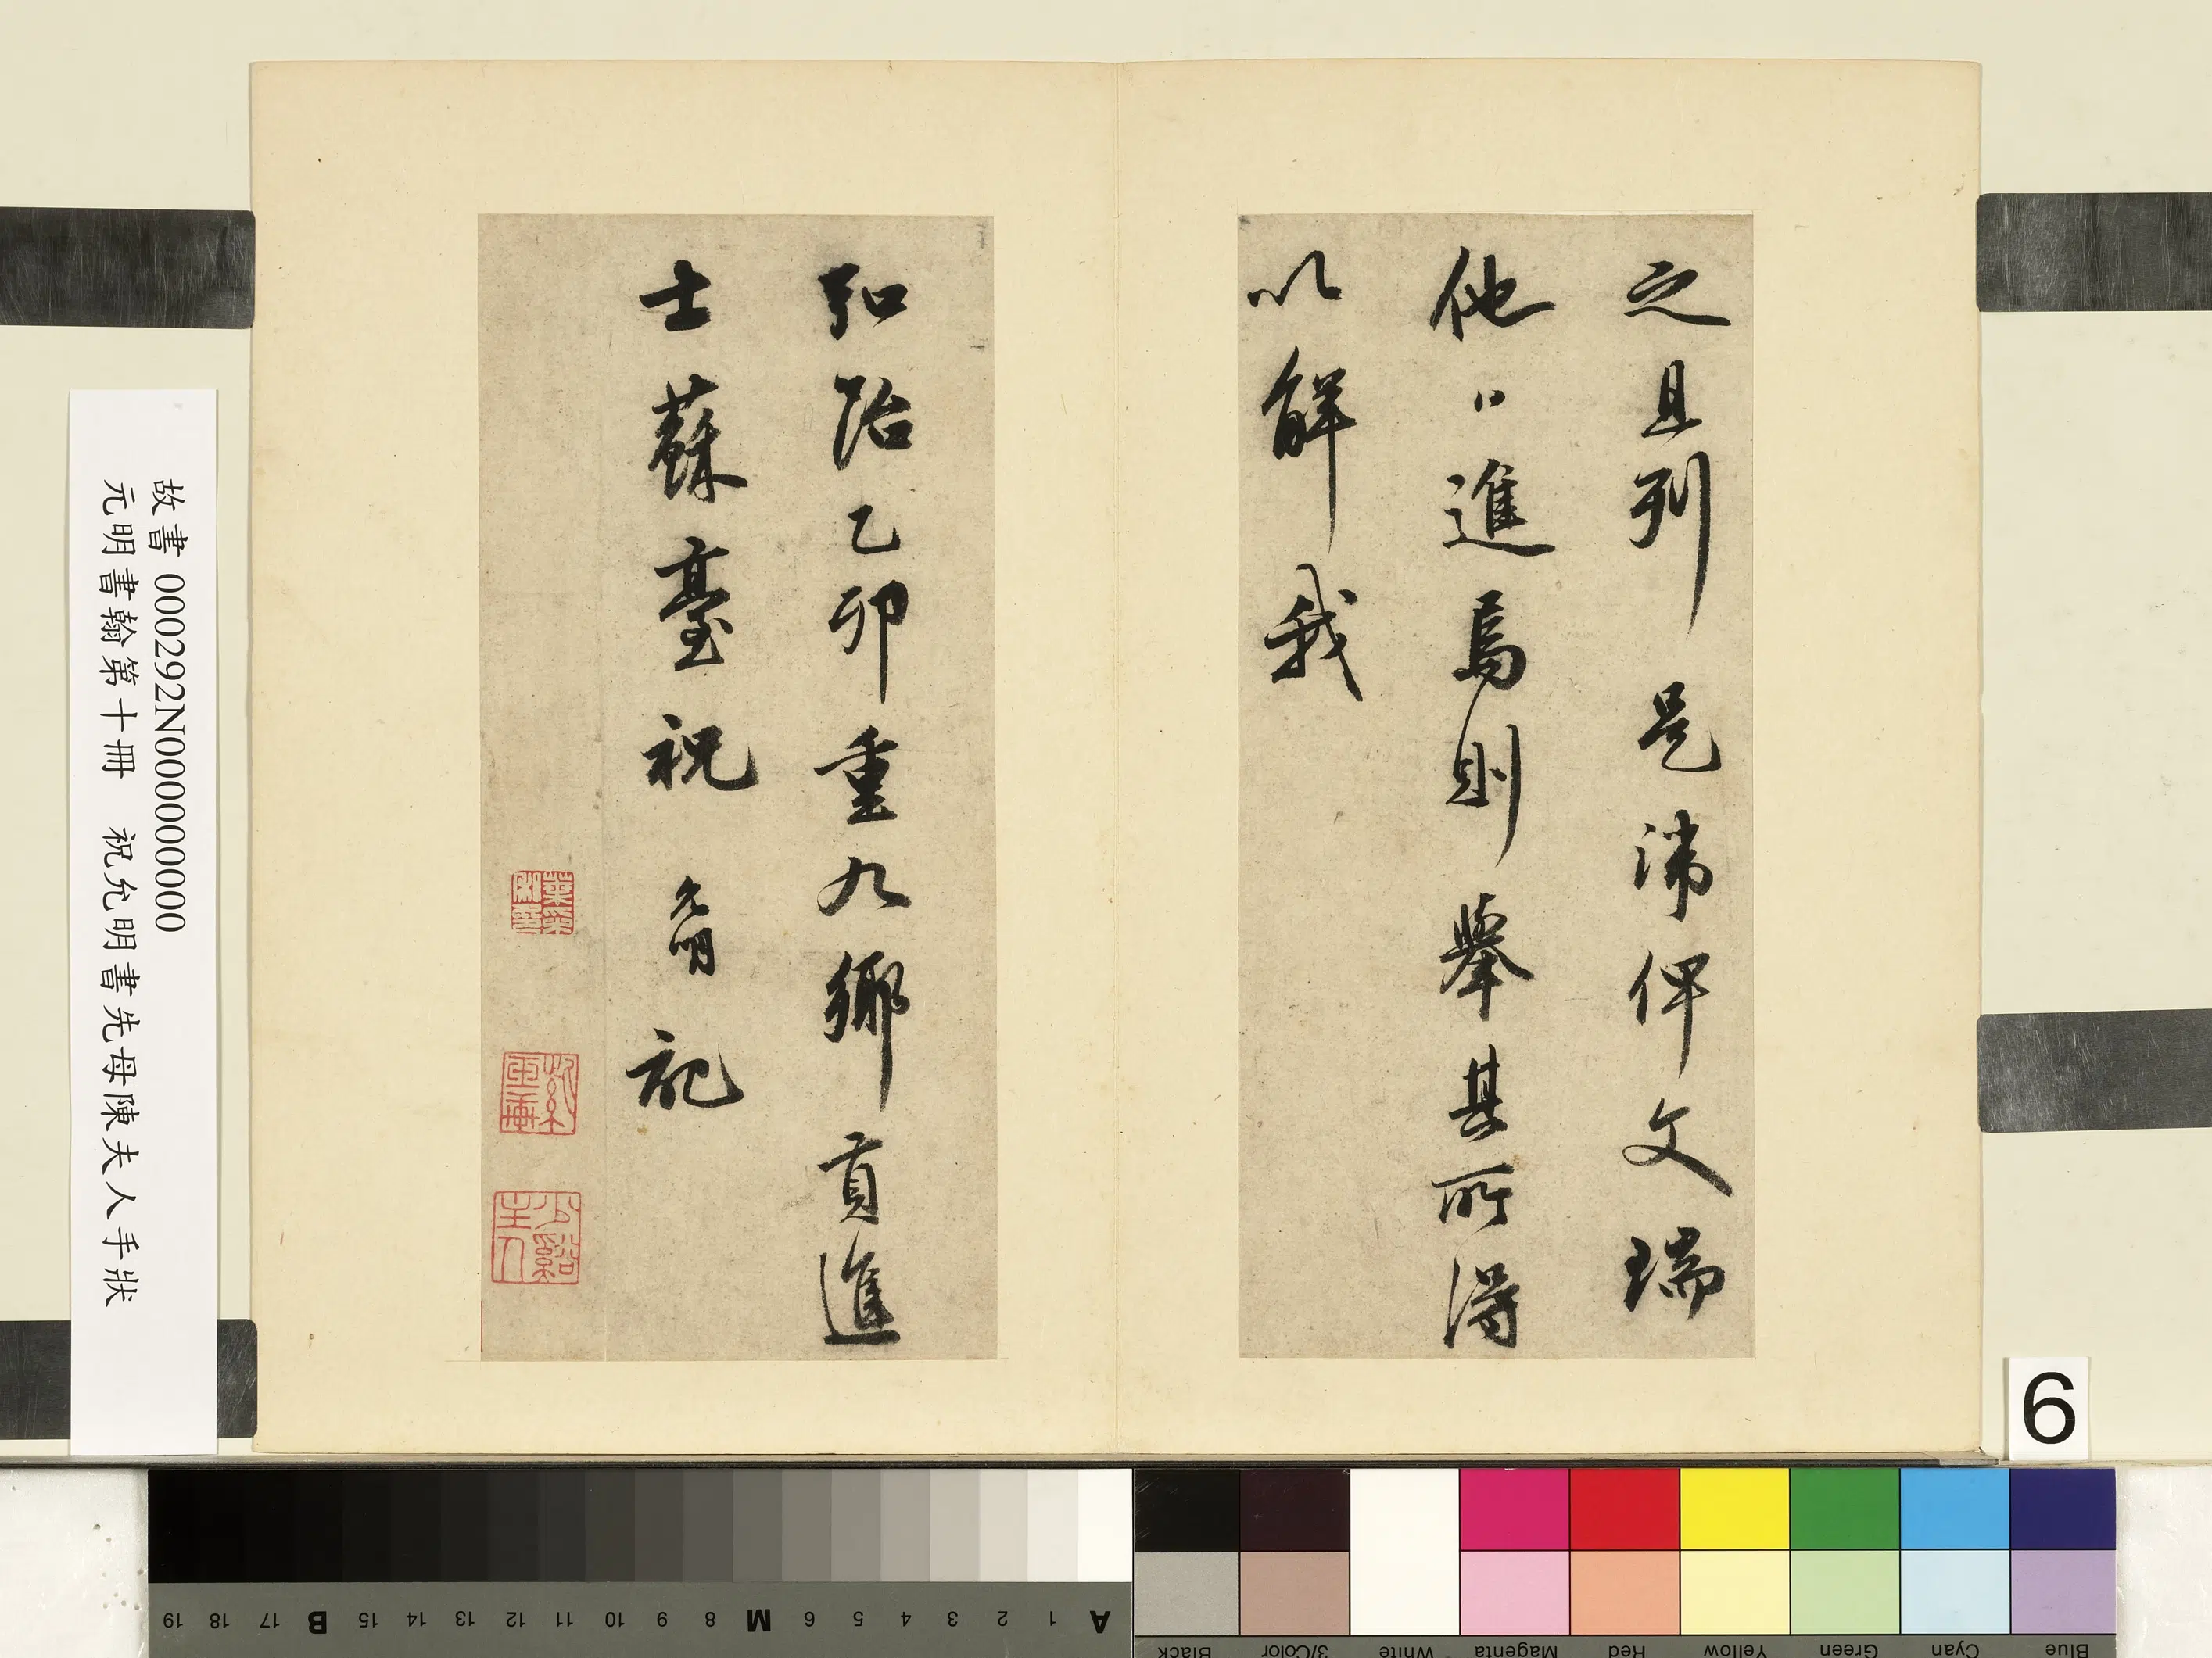 之且列是沸俾文瑞
他日進焉則舉其所得
以解我
弘治乙卯重九鄉貢進
士蘇臺祝允明記
故書 000292N000000000
元明書翰第十冊 祝允明書先母陳夫人手狀
6
A 1 2 3 4 5 6 M 8 9 10 11 12 13 14 15 B 17 18 19
Black 3/Color White Magenta Red Yellow Green Cyan Blue